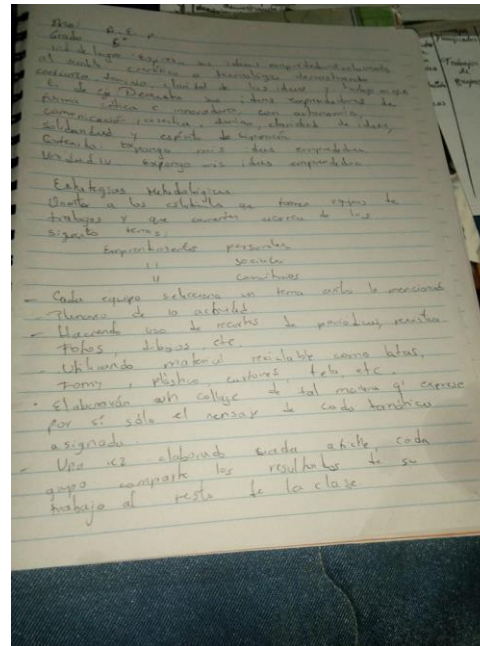 A. E. P
Grado 6°
Ind de logro: Expresa sus ideas emprendedoras
al ámbito científico o tecnológico demostrando
confianza, dominio, claridad de las ideas y trabajo en equipo
E. de cp Demuestra sus ideas emprendedoras de
forma crítica e innovadora, con autonomía,
comunicación, asertiva, dominio, claridad de ideas,
solidaridad y espíritu de superación
Contenido: Expongo mis ideas emprendedoras
Unidad IV expongo mis ideas emprendedoras
Estrategias Metodológicas
Orienta a los estudiantes que formen equipos de
trabajos y que comenten acerca de los
siguiente temas:
Emprendimientos personales
11 sociales
11 comunitarios
- Cada equipo selecciona un tema antes lo mencionado
- Planeaco de la actividad
- Haciendo uso de recortes de periódicos, revistas
Fotos, dibujos, etc.
- Utilizando material reciclable como latas,
Fomy, plástico, cartones, tela, etc.
- Elaborarán un collage de tal manera q' exprese
por sí sólo el mensaje de cada temática
asignada
- Una vez elaborado cada afiche, cada
grupo comparte los resultados de su
trabajo al resto de la clase.
Trabajo
de
grupo